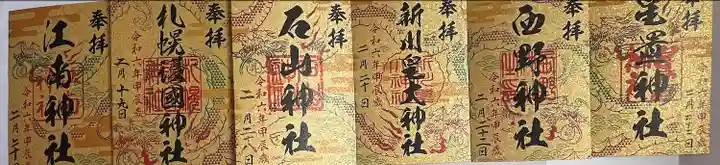 奉拝
星置神社
令和六年甲辰歳
二月二十三日
奉拝
西野神社
令和六年甲辰歳
二月二十二日
奉拝
新川皇大神社
令和六年甲辰歳
二月二十日
奉拝
石山神社
令和六年甲辰歳
二月二十八日
奉拝
札幌護國神社
令和六年甲辰歳
二月十九日
奉拝
江南神社
令和六年甲辰歳